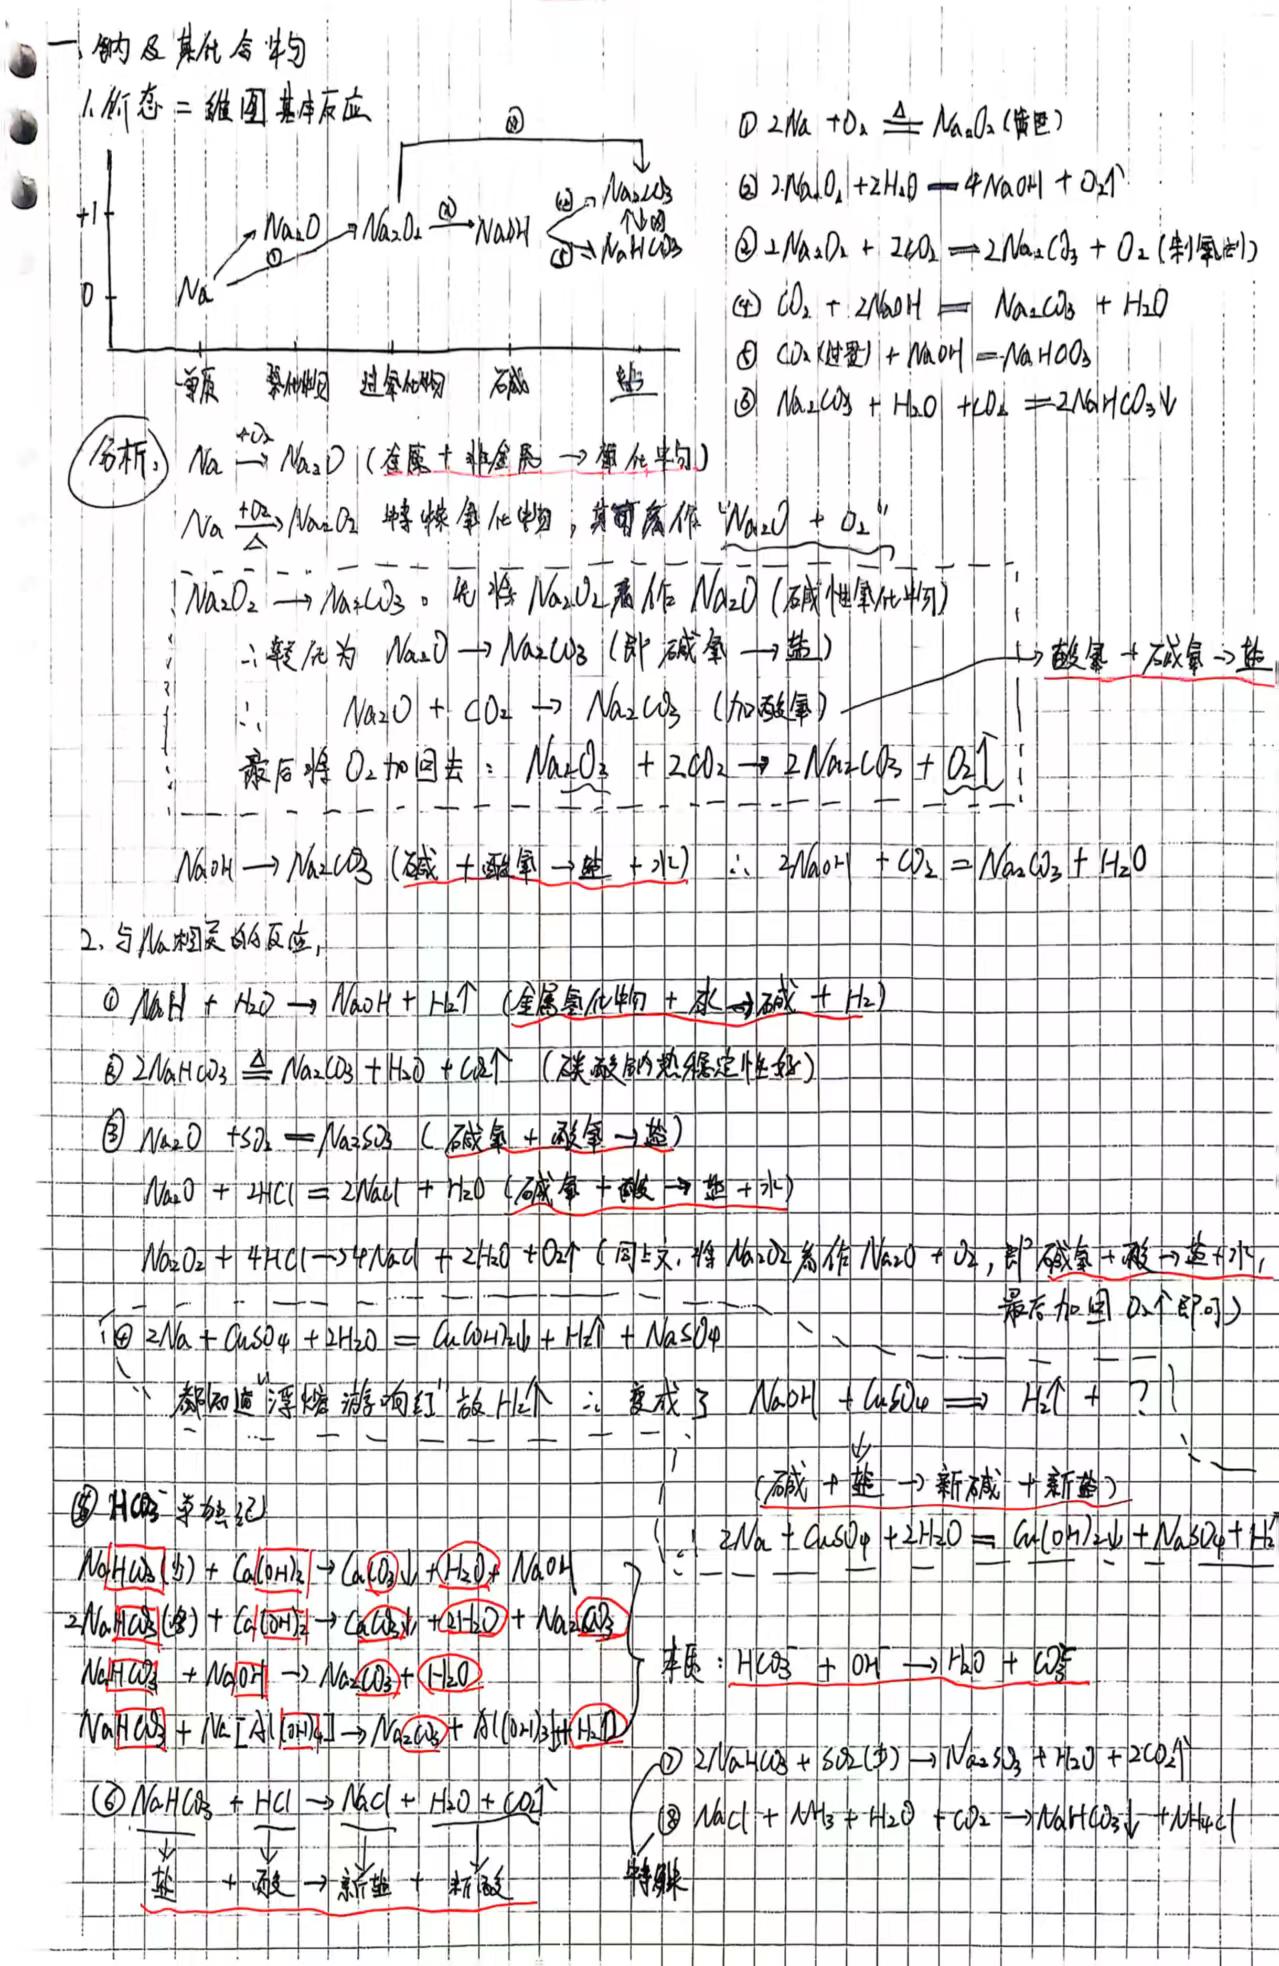 一、钠及其化合物
1.价态二维图基本反应
+1
0
Na
Na₂O
①
Na₂O₂
②
NaOH
③
④
⑤
Na₂CO₃
↑↓⑥
NaHCO₃
单质 氧化物 过氧化物 碱 盐
① 2Na + O₂ ≜ Na₂O₂ (黄色)
② 2Na₂O₂ + 2H₂O = 4NaOH + O₂↑
② 2Na₂O₂ + 2CO₂ = 2Na₂CO₃ + O₂ (制氧剂)
(4) CO₂ + 2NaOH = Na₂CO₃ + H₂O
⑤ CO₂(过量) + NaOH = NaHCO₃
⑥ Na₂CO₃ + H₂O + CO₂ = 2NaHCO₃↓
分析: Na —+O₂→ Na₂O (金属 + 非金属 → 氧化物)
Na —+O₂/△→ Na₂O₂ 特殊氧化物，其可看作 "Na₂O + O₂"
Na₂O₂ → Na₂CO₃。先将 Na₂O₂看作 Na₂O (碱性氧化物)
∴ 转化为 Na₂O → Na₂CO₃ (即 碱氧 → 盐)
∴ Na₂O + CO₂ → Na₂CO₃ (加酸氧) → 酸氧 + 碱氧 → 盐
最后将 O₂加回去: Na₂O₂ + 2CO₂ → 2Na₂CO₃ + O₂↑
NaOH → Na₂CO₃ (碱 + 酸氧 → 盐 + 水) ∴ 2NaOH + CO₂ = Na₂CO₃ + H₂O
2. 与Na相关的反应,
① NaH + H₂O → NaOH + H₂↑ (金属氢化物 + 水 → 碱 + H₂)
② 2NaHCO₃ ≜ Na₂CO₃ + H₂O + CO₂↑ (碳酸钠热稳定性好)
③ Na₂O + SO₂ = Na₂SO₃ (碱氧 + 酸氧 → 盐)
Na₂O + 2HCl = 2NaCl + H₂O (碱氧 + 酸 → 盐 + 水)
Na₂O₂ + 4HCl → 4NaCl + 2H₂O + O₂↑ (同上文, 将 Na₂O₂看作 Na₂O + O₂, 即 碱氧 + 酸 → 盐 + 水,
最后加回 O₂↑即可)
④ 2Na + CuSO₄ + 2H₂O = Cu(OH)₂↓ + H₂↑ + NaSO₄
都知道"浮熔游响红"故H₂↑ ∴ 变成了 NaOH + CuSO₄ ⇒ H₂↑ + ?
(碱 + 盐 → 新碱 + 新盐)
∴ 2Na + CuSO₄ + 2H₂O = Cu(OH)₂↓ + NaSO₄ + H₂
⑤ HCO₃⁻
NaHCO₃(少) + Ca(OH)₂ → CaCO₃↓ + H₂O + NaOH
2NaHCO₃ + Ca(OH)₂ → CaCO₃↓ + 2H₂O + Na₂CO₃
NaHCO₃ + NaOH → Na₂CO₃ + H₂O
NaHCO₃ + Na[Al(OH)₄] → Na₂CO₃ + Al(OH)₃↓ + H₂O
本质: HCO₃⁻ + OH⁻ → H₂O + CO₃²⁻
⑥ NaHCO₃ + HCl → NaCl + H₂O + CO₂↑
盐 + 酸 → 新盐 + 新酸
⑦ 2NaHCO₃ + SO₂(少) → Na₂SO₃ + H₂O + 2CO₂↑
⑧ NaCl + NH₃ + H₂O + CO₂ → NaHCO₃↓ + NH₄Cl
特殊